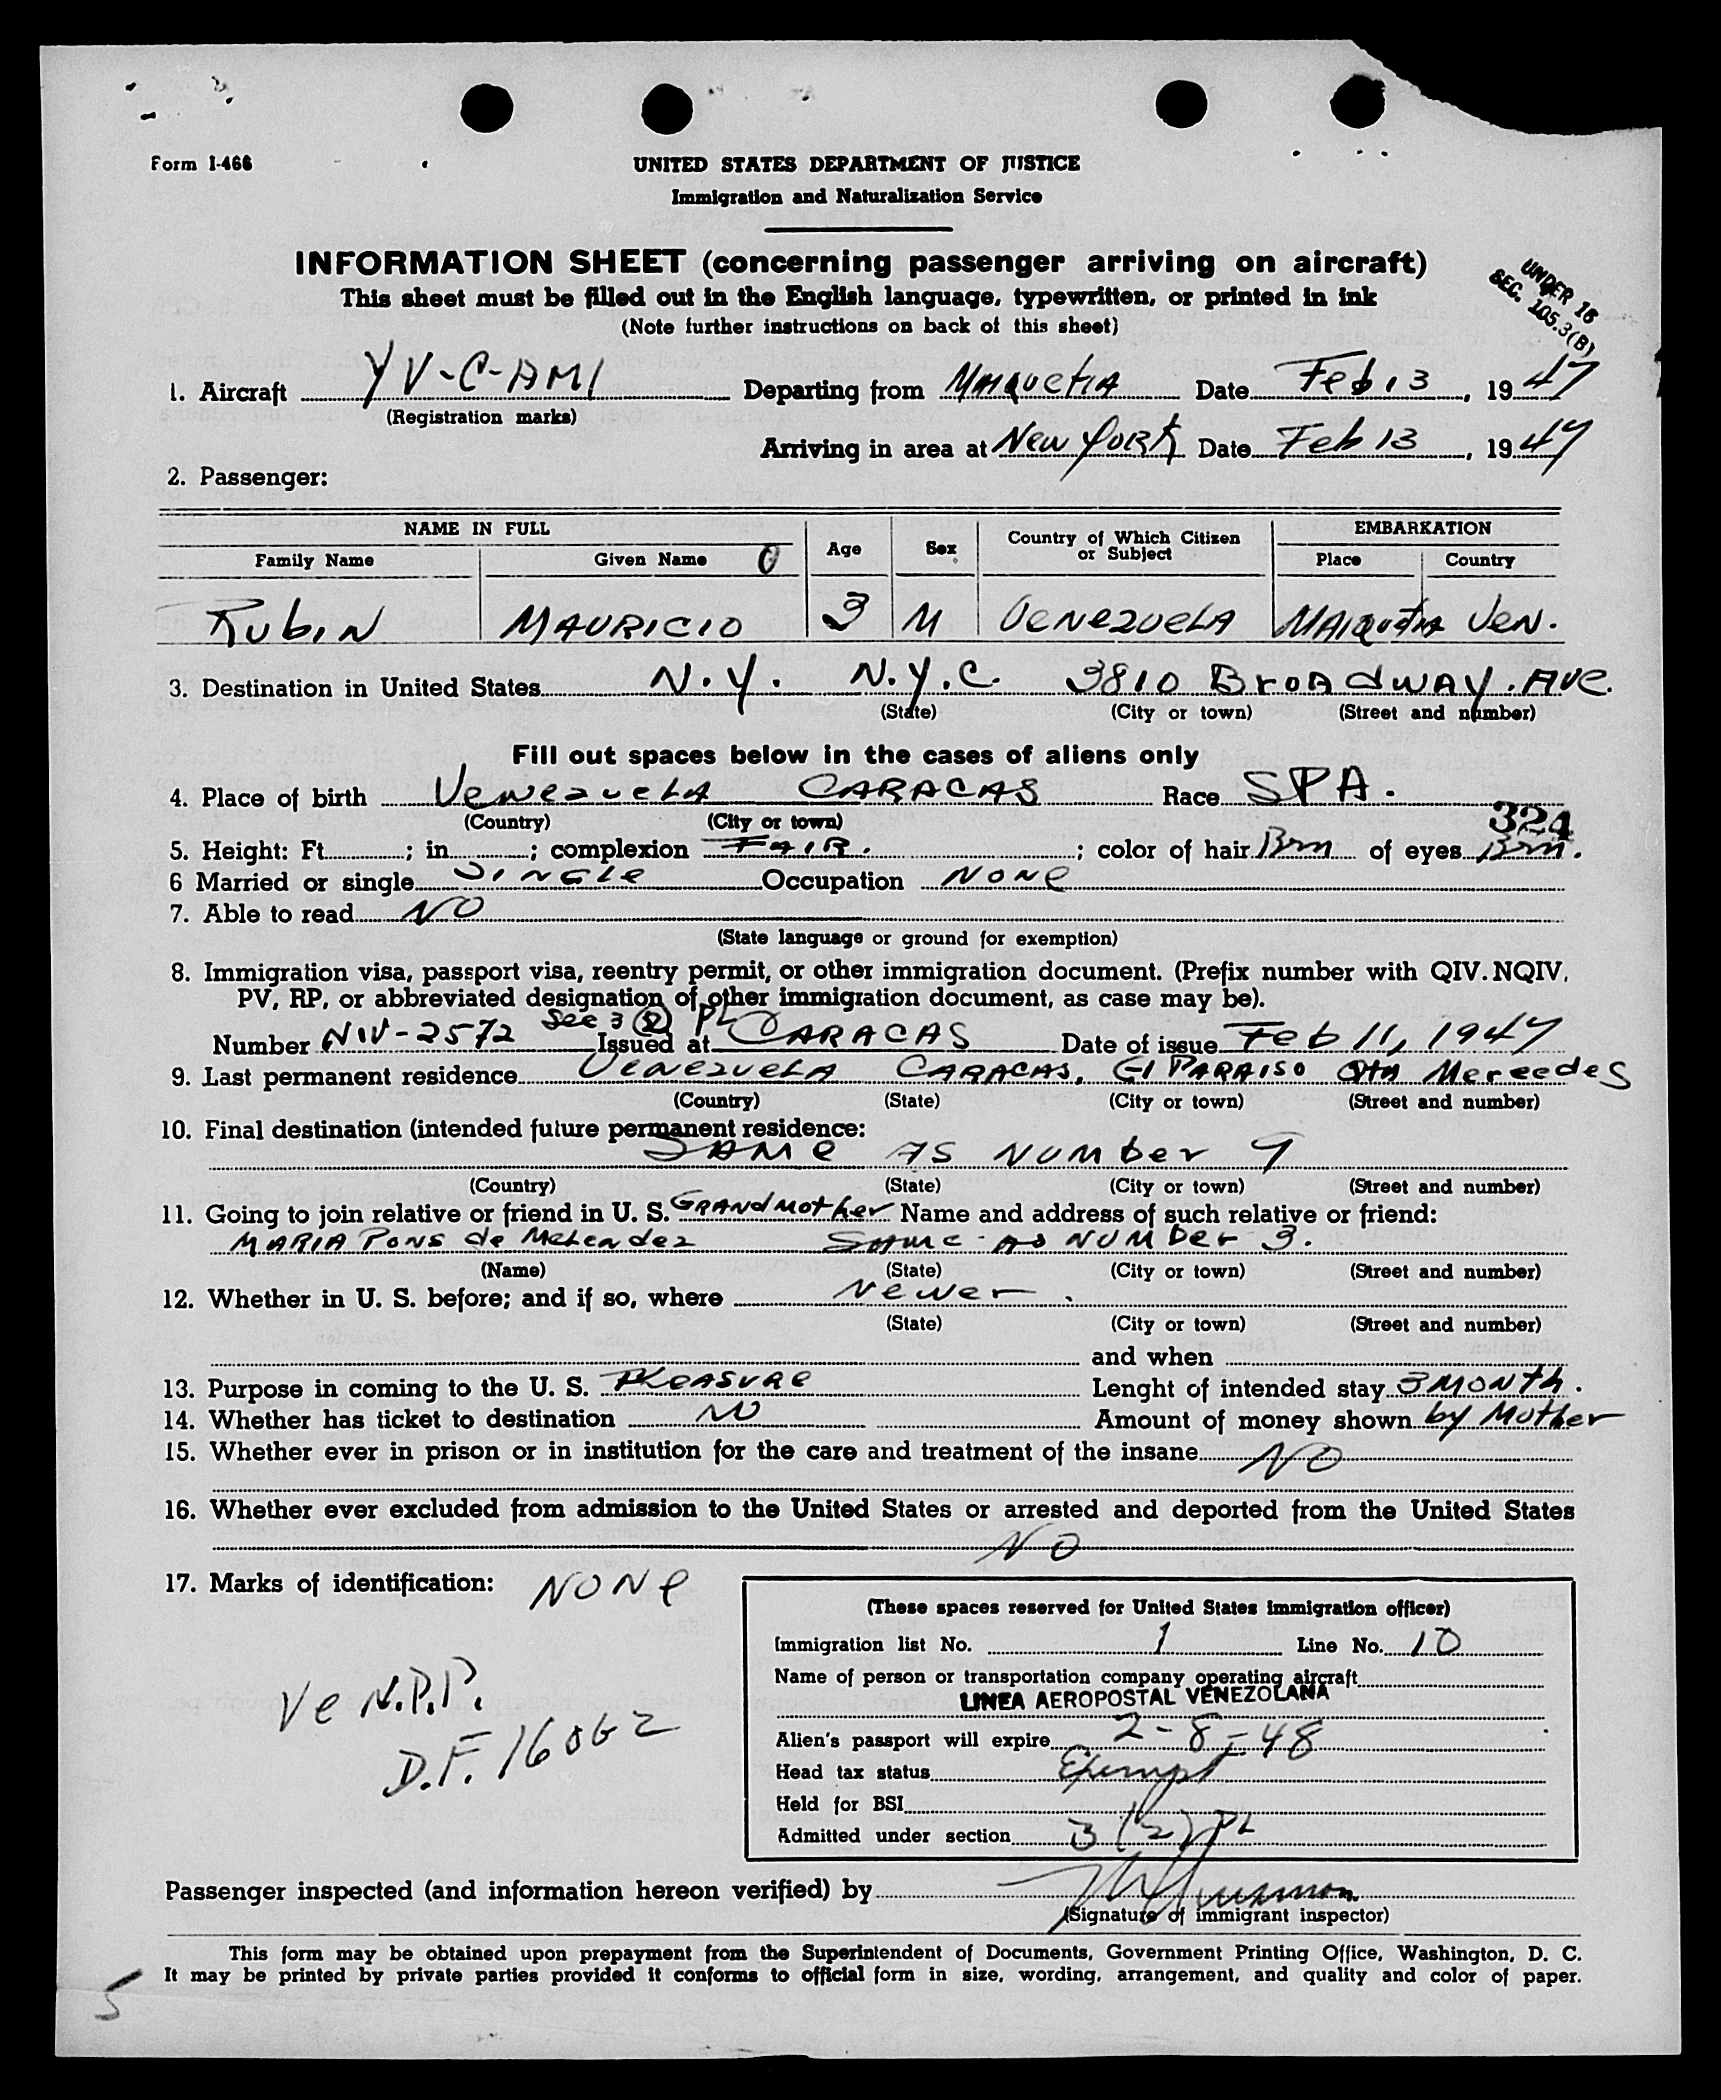 Form I-466
UNITED STATES DEPARTMENT OF JUSTICE
Immigration and Naturalization Service
INFORMATION SHEET (concerning passenger arriving on aircraft)
This sheet must be filled out in the English language, typewritten, or printed in ink
(Note further instructions on back of this sheet)
UNDER 16
SEC. 105.3(B)
1. Aircraft YV-C-AMI Departing from MAIQUETIA Date Feb 13, 1947
(Registration marks)
Arriving in area at New YORK Date Feb 13, 1947
2. Passenger:
NAME IN FULL Age Sex Country of Which Citizen or Subject EMBARKATION
Family Name Given Name Place Country
RubIN MAURICIO 3 M VeNezueLA MAIQUETIA VeN.
3. Destination in United States N.Y. N.Y.C. 3810 BroAdwAy.Ave.
(State) (City or town) (Street and number)
Fill out spaces below in the cases of aliens only
4. Place of birth VeNezueLA CARACAS Race SPA.
(Country) (City or town)
324
5. Height: Ft. ; in. ; complexion FAIR. ; color of hair Brn of eyes Brn.
6 Married or single SINGLe Occupation NONe
7. Able to read NO
(State language or ground for exemption)
8. Immigration visa, passport visa, reentry permit, or other immigration document. (Prefix number with QIV. NQIV,
PV, RP, or abbreviated designation of other immigration document, as case may be).
Number NIV-2572 Sec 3 (2) PL Issued at CARACAS Date of issue Feb 11, 1947
9. Last permanent residence VENezueLA CARACAS, El PARAISO QtA MercedeS
(Country) (State) (City or town) (Street and number)
10. Final destination (intended future permanent residence:
SAMe AS NUMber 9
(Country) (State) (City or town) (Street and number)
11. Going to join relative or friend in U. S. GRANdMother Name and address of such relative or friend:
MARIA PONS de MeLendez SAMe AS NUMber 3.
(Name) (State) (City or town) (Street and number)
12. Whether in U. S. before; and if so, where Never .
(State) (City or town) (Street and number)
and when
13. Purpose in coming to the U. S. PLeASURe Lenght of intended stay 3 MONth.
14. Whether has ticket to destination NO Amount of money shown by Mother
15. Whether ever in prison or in institution for the care and treatment of the insane NO
16. Whether ever excluded from admission to the United States or arrested and deported from the United States
NO
17. Marks of identification: NONe
VeN.P.P.
D.F. 16062
(These spaces reserved for United States immigration officer)
Immigration list No. 1 Line No. 10
Name of person or transportation company operating aircraft
LINEA AEROPOSTAL VENEZOLANA
Alien's passport will expire 2-8-48
Head tax status Exempt
Held for BSI
Admitted under section 3(2) PL
Passenger inspected (and information hereon verified) by
(Signature of immigrant inspector)
This form may be obtained upon prepayment from the Superintendent of Documents, Government Printing Office, Washington, D. C.
It may be printed by private parties provided it conforms to official form in size, wording, arrangement, and quality and color of paper.
5